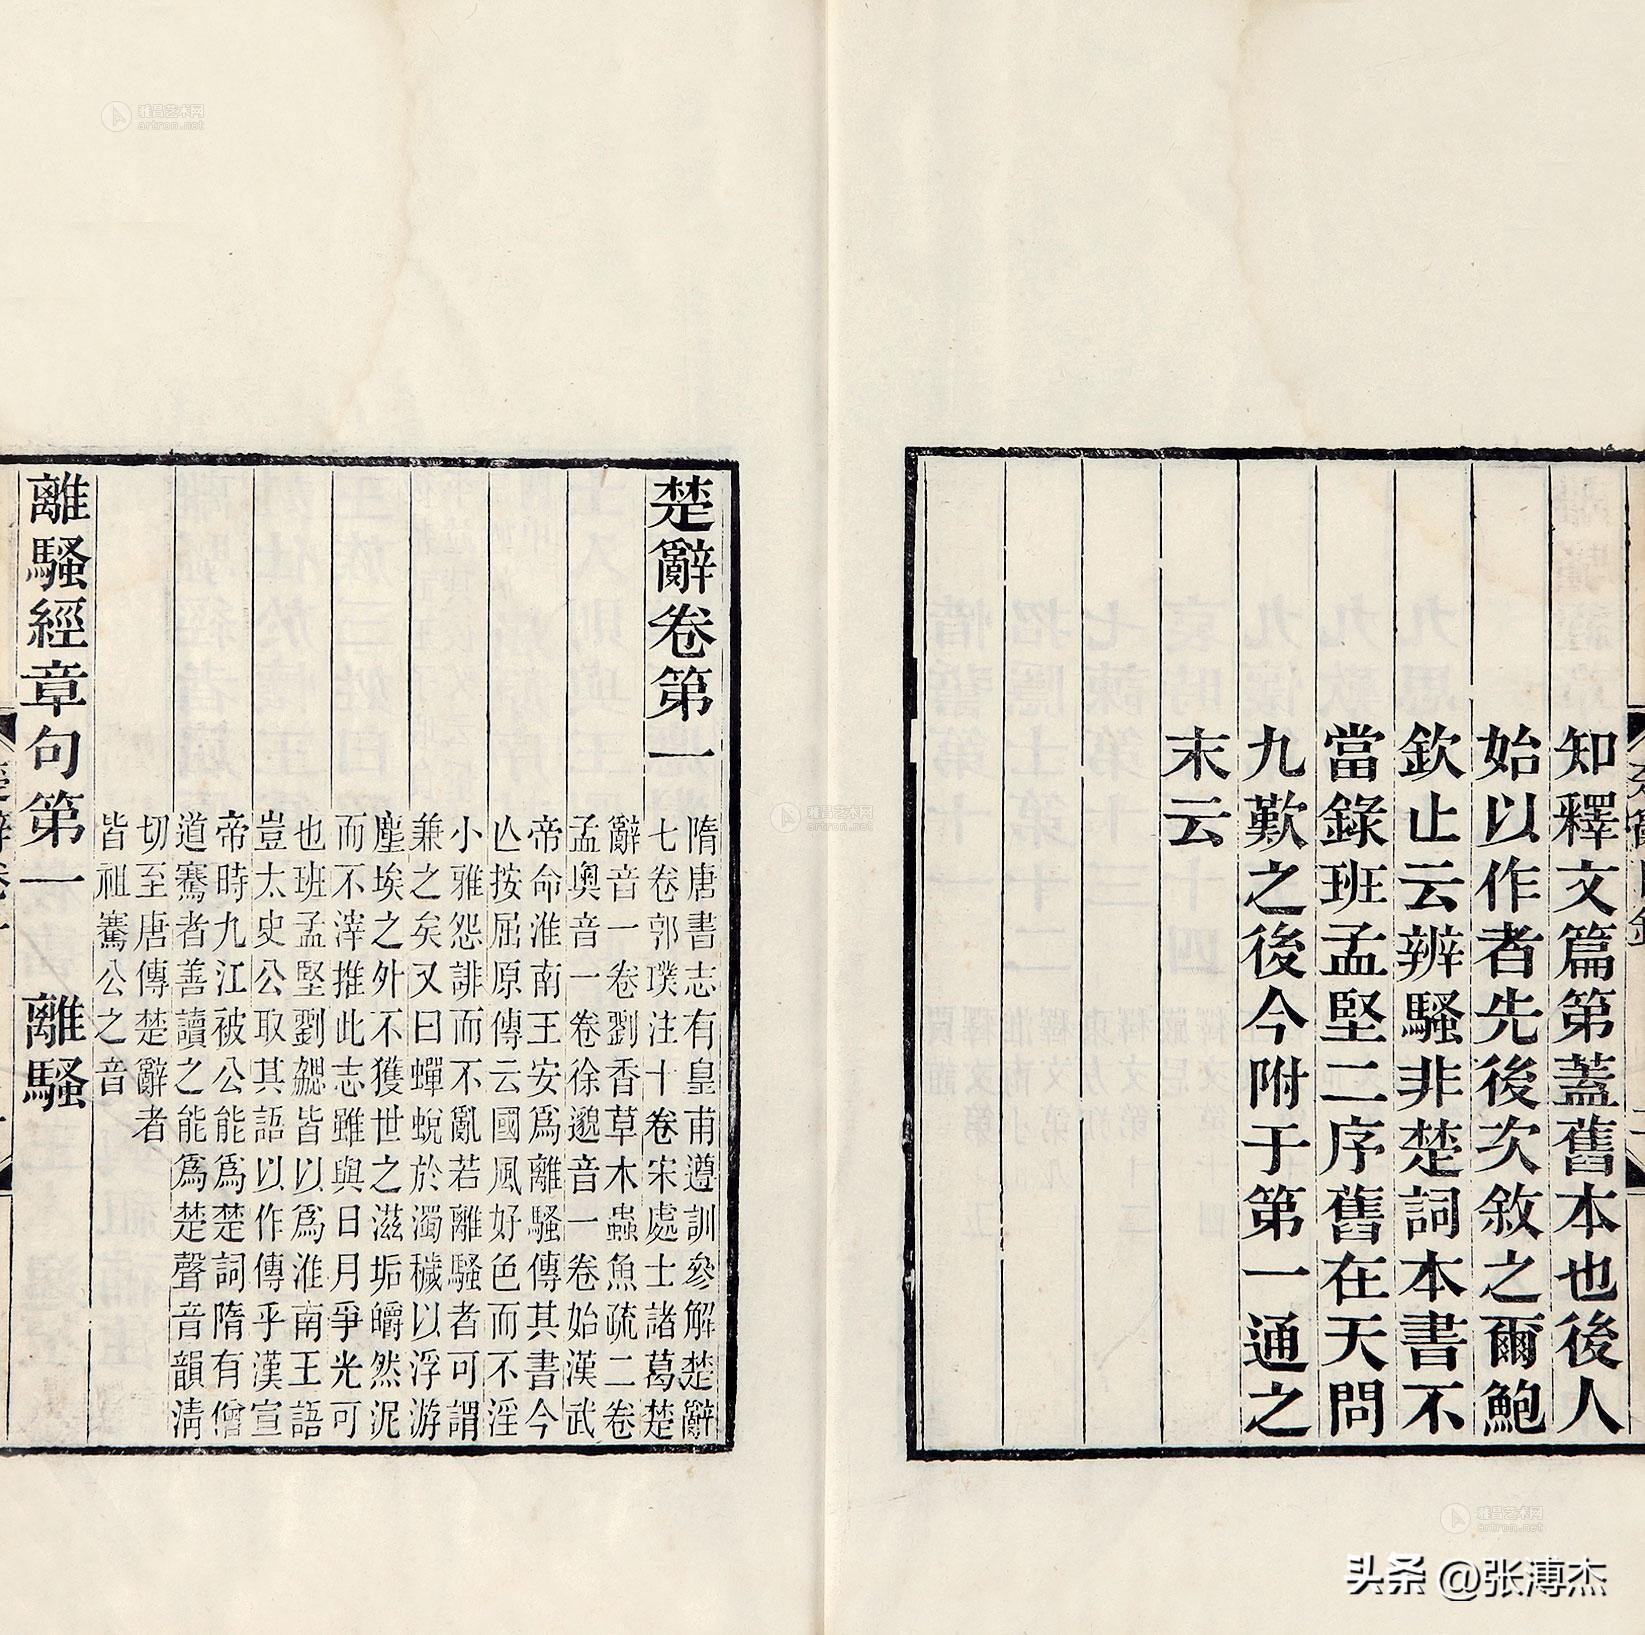 知釋文篇第蓋舊本也後人
始以作者先後次敘之爾鮑
欽止云辨騷非楚詞本書不
當錄班孟堅二序舊在天問
九歎之後今附于第一通之
末云
楚辭卷第一
隋唐書志有皇甫遵訓參解楚辭
七卷郭璞注十卷宋處士諸葛楚
辭音一卷劉香草木蟲魚疏二卷
孟奧音一卷徐邈音一卷始漢武
帝命淮南王安爲離騷傳其書今
亾按屈原傳云國風好色而不淫
小雅怨誹而不亂若離騷者可謂
兼之矣又曰蟬蛻於濁穢以浮游
塵埃之外不獲世之滋垢皭然泥
而不滓推此志雖與日月爭光可
也班孟堅劉勰皆以爲淮南王語
豈太史公取其語以作傳乎漢宣
帝時九江被公能爲楚詞隋有僧
道騫者善讀之能爲楚聲音韻清
切至唐傳楚辭者
皆祖騫公之音
離騷經章句第一 離騷
雅昌艺术网
artron.net
雅昌艺术网
artron.net
雅昌艺术网
artron.net
头条 @张溥杰